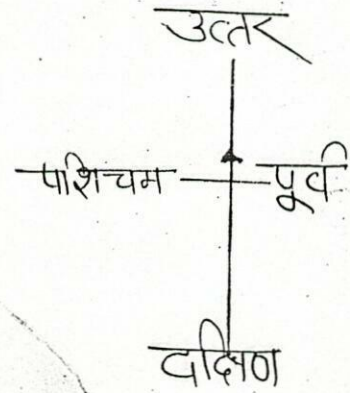 उत्तर
पशिचम पूर्व
दक्षिण